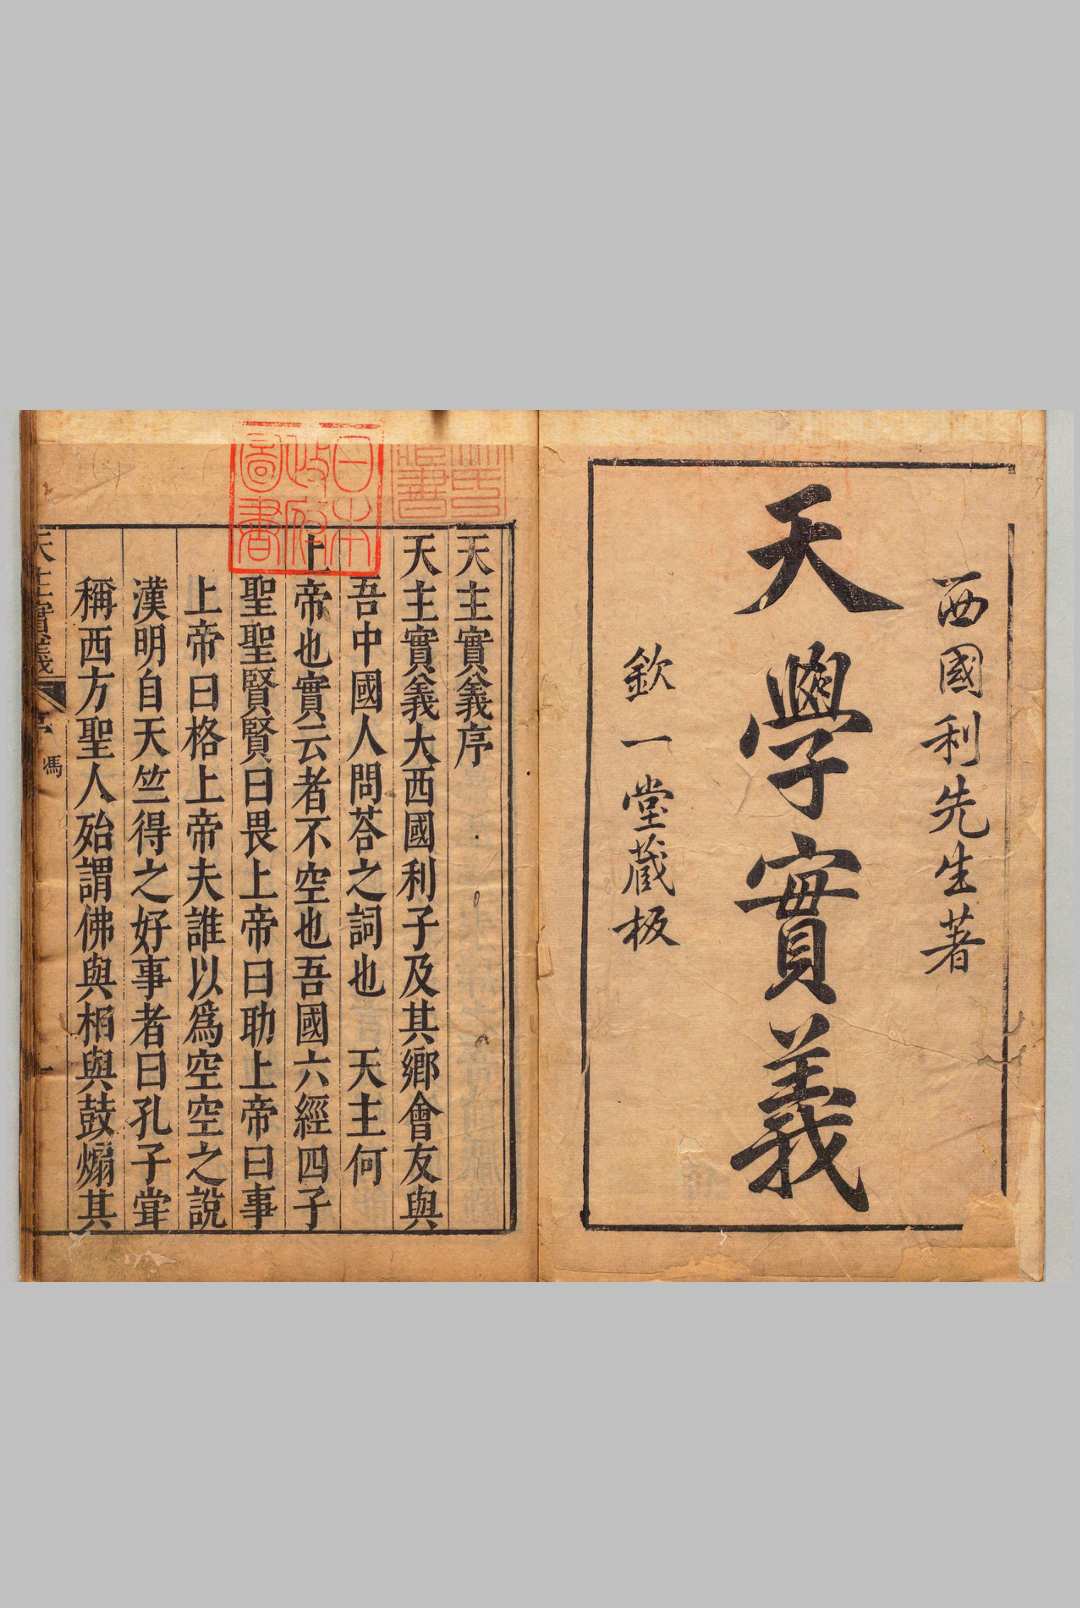 西國利先生著
天學實義
欽一堂藏板
天主實義序
天主實義大西國利子及其鄉會友與
吾中國人問答之詞也　天主何
上帝也實云者不空也吾國六經四子
聖聖賢賢曰畏上帝曰助上帝曰事
上帝曰格上帝夫誰以爲空空之說
漢明自天竺得之好事者曰孔子甞
稱西方聖人殆謂佛與相與鼓煽其
天主實義
序
馮
一
日本
政府
圖書